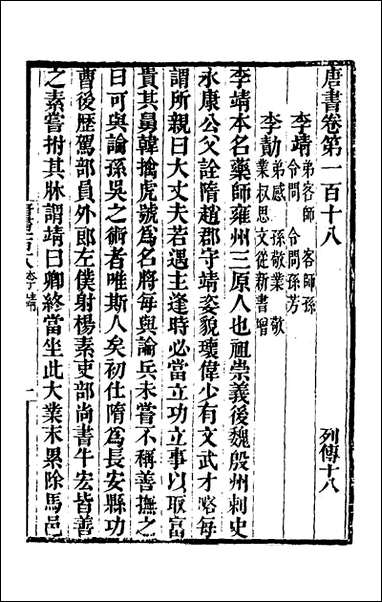 唐書卷第一百十八　列傳十八
李靖弟客師　客師孫
令問　令問孫芳
李勣弟感　孫敬業　敬
業叔思文從新書增
李靖本名藥師雍州三原人也祖崇義後魏殷州刺史
永康公父詮隋趙郡守靖姿貌瓌偉少有文武才略每
謂所親曰大丈夫若遇主逢時必當立功立事以取富
貴其舅韓擒虎號為名將每與論兵未嘗不稱善撫之
曰可與論孫吳之術者唯斯人矣初仕隋為長安縣功
曹後歷駕部員外郎左僕射楊素吏部尚書牛宏皆善
之素嘗拊其牀謂靖曰卿終當坐此大業末累除馬邑
李靖
一